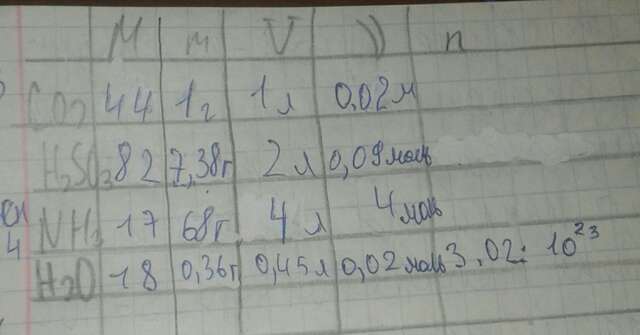 M m V ν n
CO2 44 1г 1л 0,02м
H2SO3 82 7,38г 2л 0,09моль
NH3 17 68г 4л 4моль
4 H2O 18 0,36г 0,45л 0,02моль 3,02 : 10²³